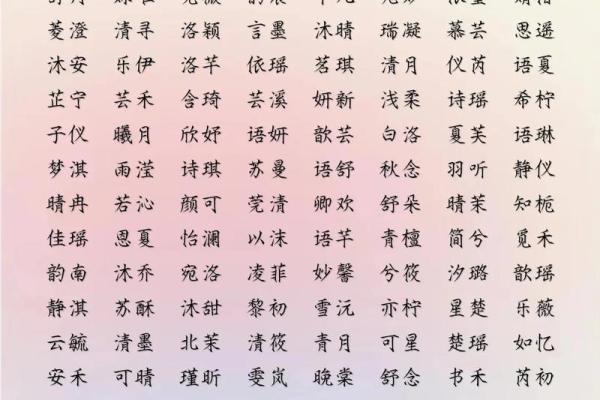 菱澄 清寻 洛颖 言墨 沐晴 瑞凝 慕芸 思遥
沐安 乐伊 洛芊 依瑶 茗琪 清月 仪芮 语夏
芷宁 芸禾 含琦 芸溪 妍新 浅柔 诗瑶 希柠
子仪 曦月 欣妤 语妍 歆芸 白洛 夏芙 语琳
梦淇 雨滢 诗琪 苏曼 语舒 秋念 羽听 静仪
晴冉 若沁 颜可 莞清 卿欢 舒朵 晴茉 知栀
佳瑶 恩夏 怡澜 以沫 语芊 青檀 简兮 觅禾
韵南 沐乔 宛洛 凌菲 妙馨 兮筱 汐璐 歆瑶
静淇 苏酥 沐甜 黎初 雪沅 亦柠 星楚 乐薇
云毓 清墨 北茉 清筱 青月 可星 楚瑶 如忆
安禾 可晴 瑾昕 雯岚 晚棠 舒念 书禾 芮初